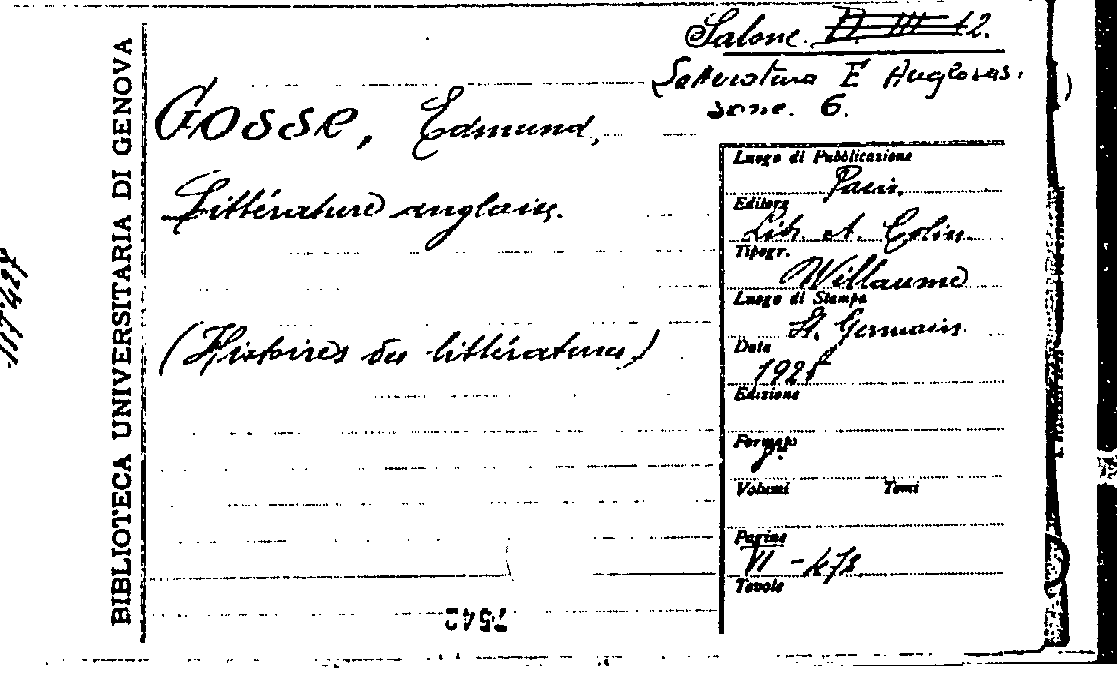 Salone. VI. III 12.
Letteratura E Anglosas-
sone. 6.
BIBLIOTECA UNIVERSITARIA DI GENOVA
Gosse, Edmund,
Littérature anglaise.
(Histoires des littératures)
Luogo di Pubblicazione
Paris.
Editore
Lib. A. Colin
Tipogr.
Willaume
Luogo di Stampa
St. Germain
Data
Edizione
Formato
8°
Volumi Tomi
Pagine
VI - 478
Tavole
7542